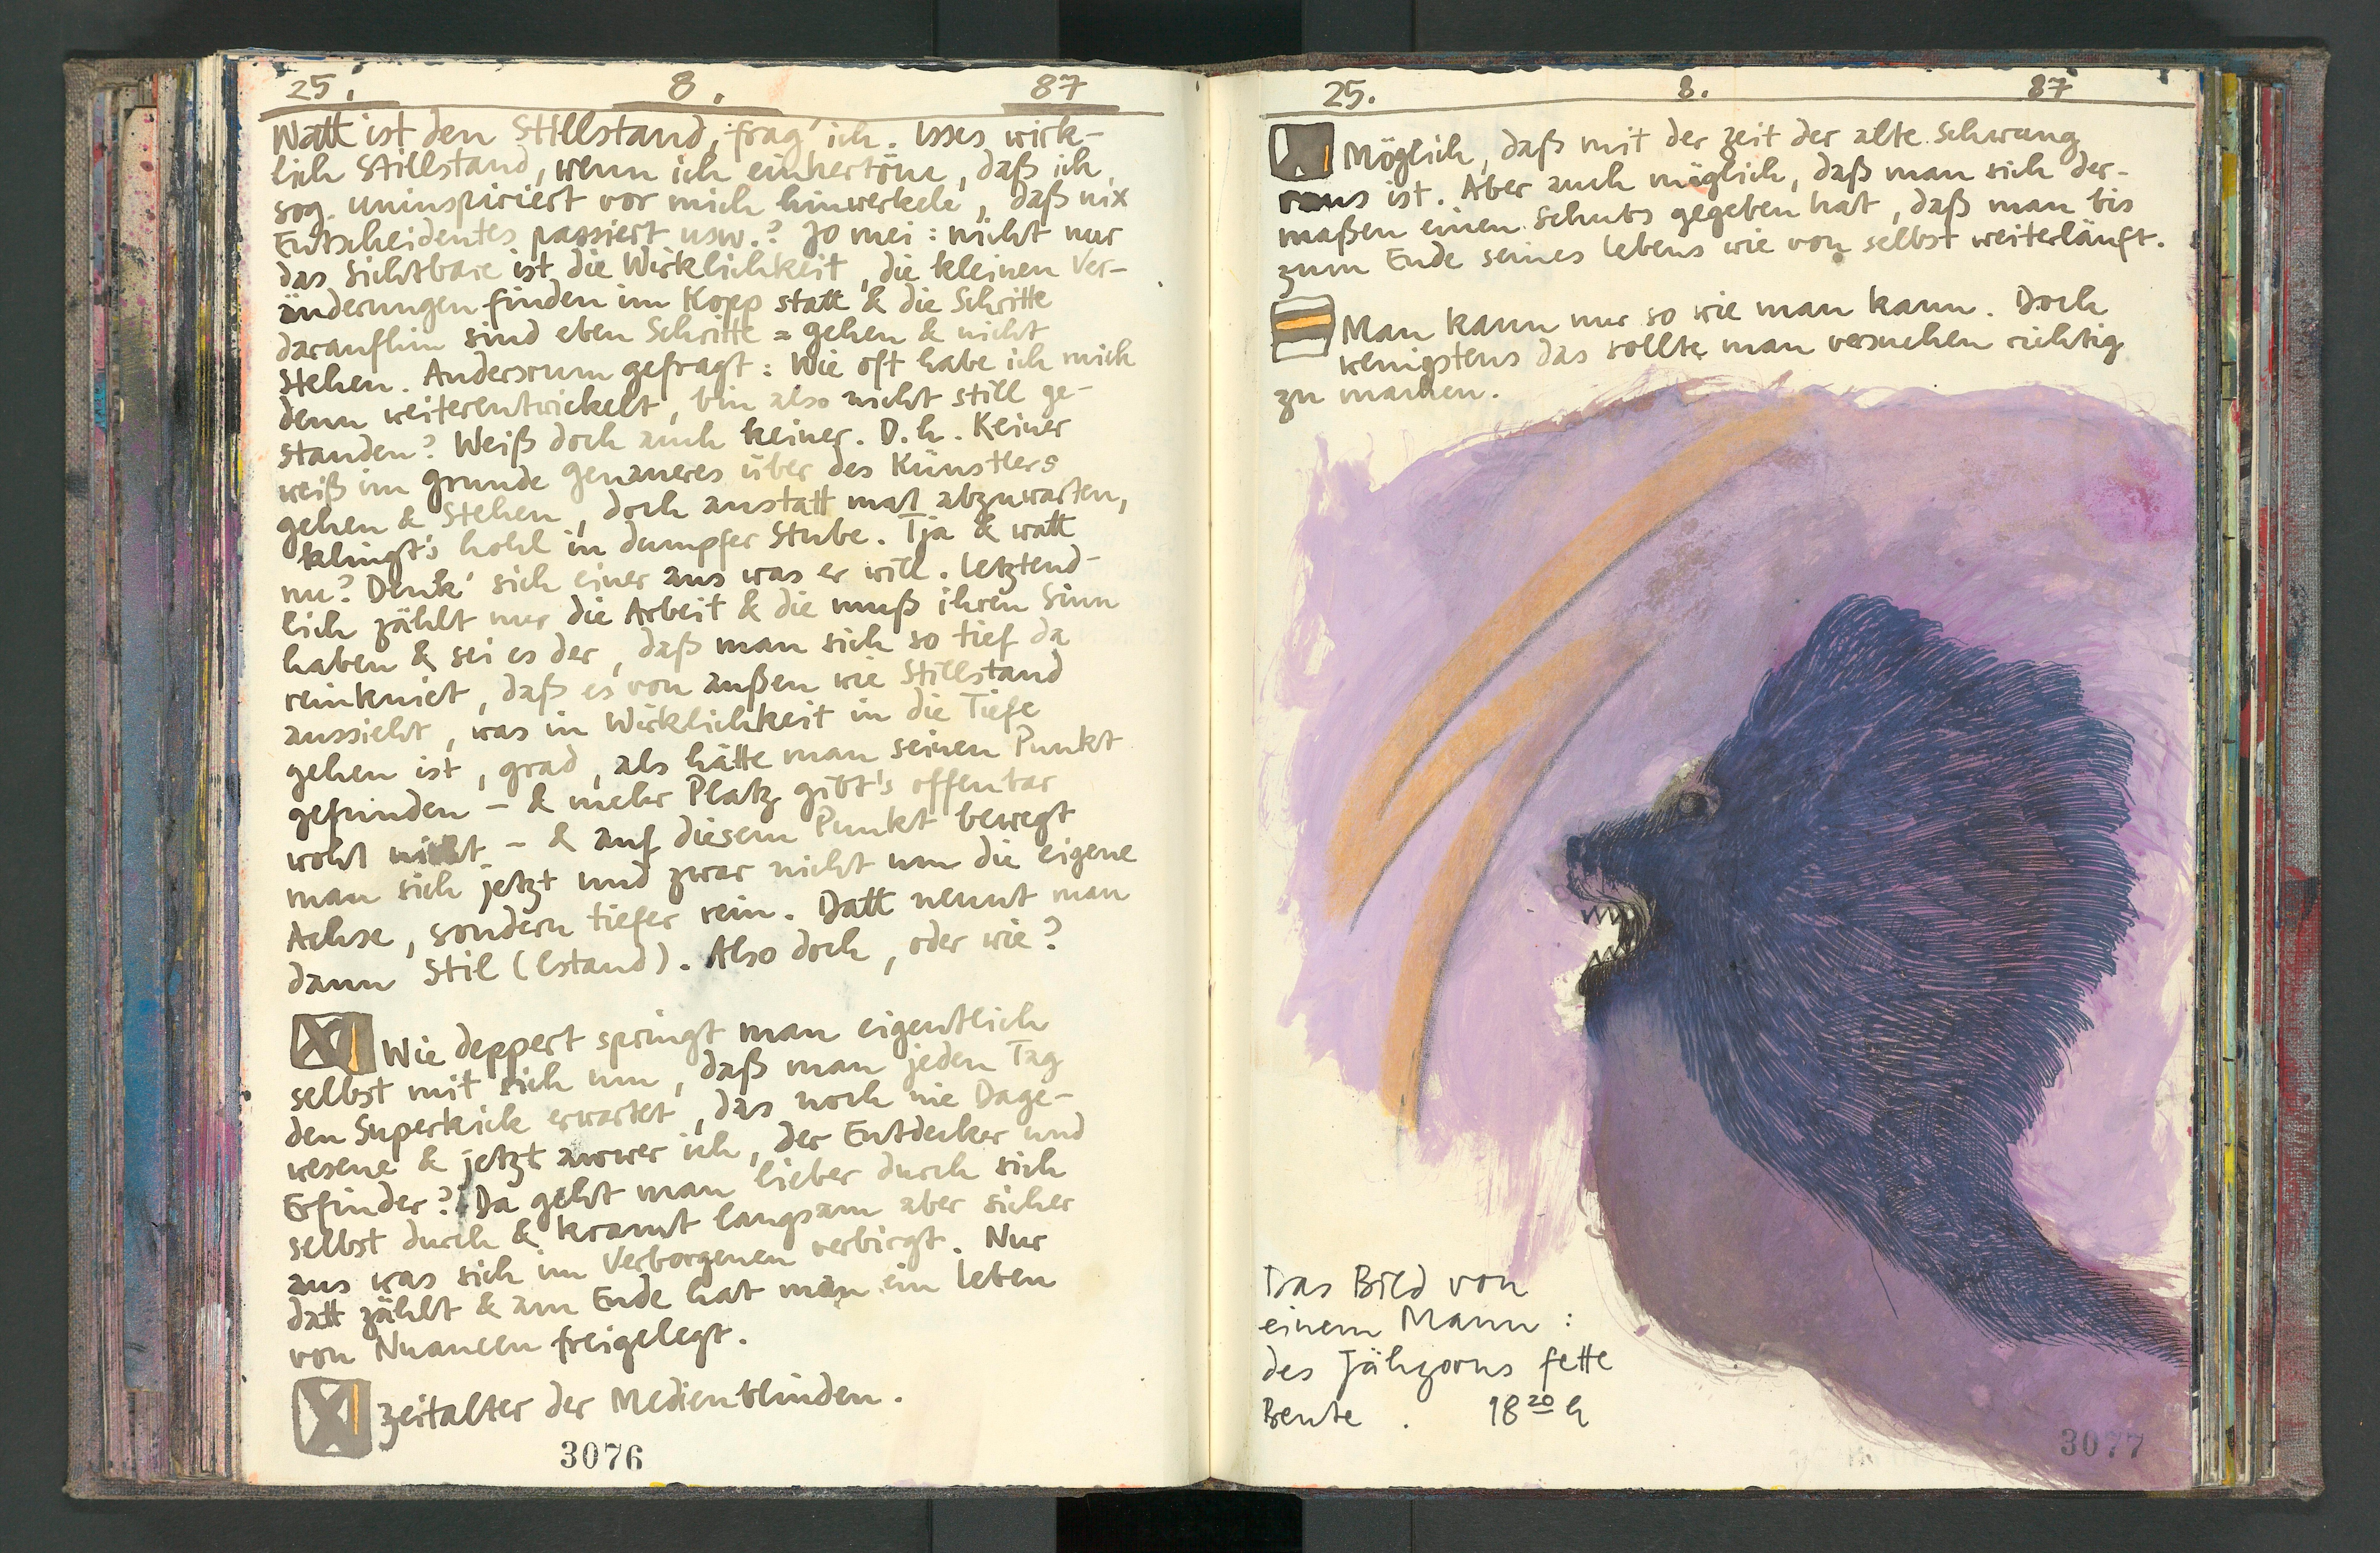 25. 8. 87
Watt ist den Stillstand, frag' ich. Isses wirk-
lich Stillstand, wenn ich einhertöne, daß ich
sog. uninspiriert vor mich hinwerkele, daß nix
Entscheidentes passiert usw.? Jo mei: nicht nur
das Sichtbare ist die Wirklichkeit, die kleinen Ver-
änderungen finden im Kopp statt & die Schritte
daraufhin sind eben Schritte = gehen & nicht
stehen. Andersrum gefragt: Wie oft habe ich mich
denn weiterentwickelt, bin also nicht still ge-
standen? Weiß doch auch keiner. D.h. Keiner
weiß im Grunde genaueres über des Künstlers
gehen & Stehen, doch anstatt mal abzuwarten,
klingt's hohl in dumpfer Stube. Tja & watt
nu? Denk' sich einer aus was er will. Letztend-
lich zählt nur die Arbeit & die muß ihren Sinn
haben & sei es der, daß man sich so tief da
reinkniet, daß es von außen wie Stillstand
aussieht, was in Wirklichkeit in die Tiefe
gehen ist, grad, als hätte man seinen Punkt
gefunden – & mehr Platz gibt's offenbar
wohl nicht – & auf diesem Punkt bewegt
man sich jetzt und zwar nicht um die eigene
Achse, sondern tiefer rein. Datt nennt man
dann Stil (lstand). Also doch, oder wie?
Wie deppert springt man eigentlich
selbst mit sich um, daß man jeden Tag
den Superkick erwartet, das noch nie Dage-
wesene & jetzt awwer ich, der Entdecker und
Erfinder? Da geht man lieber durch sich
selbst durch & kramt langsam aber sicher
aus was sich im Verborgenen verbirgt. Nur
datt zählt & am Ende hat man ein Leben
von Nuancen freigelegt.
Zeitalter der Medienblinden.
3076
25. 8. 87
Möglich, daß mit der Zeit der alte Schwung
raus ist. Aber auch möglich, daß man sich der-
maßen einen Schubs gegeben hat, daß man bis
zum Ende seines Lebens wie von selbst weiterläuft.
Man kann nur so wie man kann. Doch
wenigstens das sollte man versuchen richtig
zu machen.
Das Bild von
einem Mann:
des Jähzorns fette
Beute. 18 20 h
3077